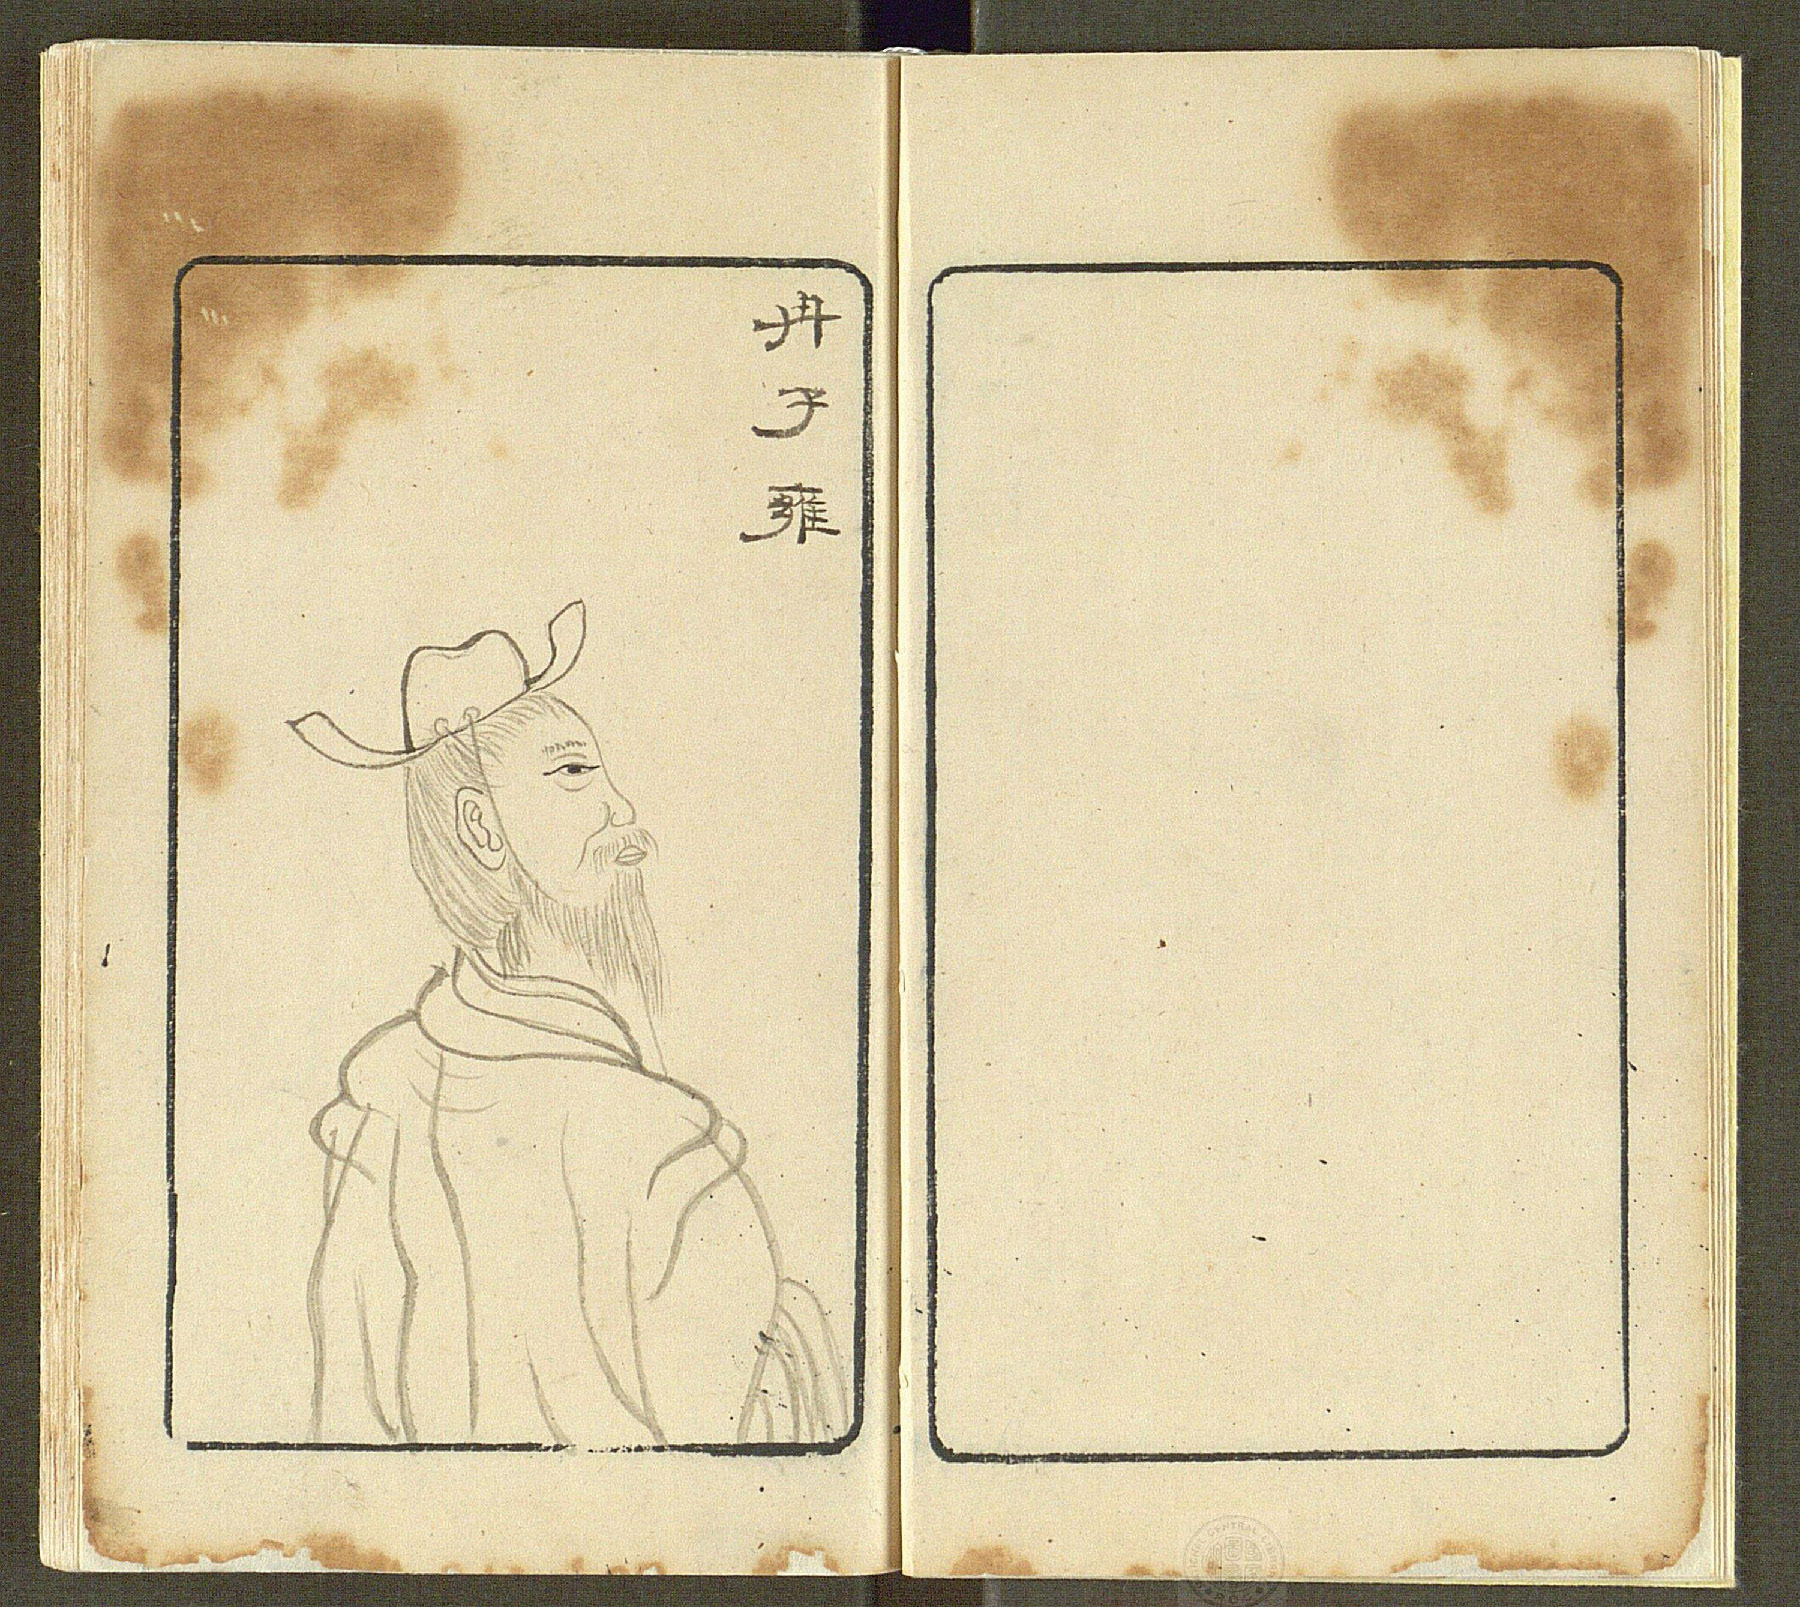 冉子雍